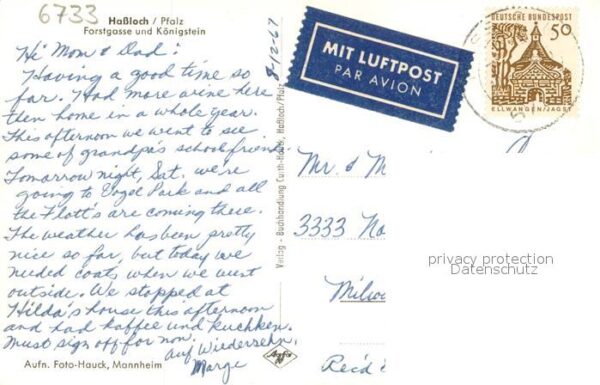 6733
Haßloch / Pfalz
Forstgasse und Königstein
Hi Mom & Dad:
Having a good time so
far. Had more wine here
then home in a whole year.
This afternoon we went to see
some of grandpa's school friends.
Tomorrow night, Sat. we're
going to Vogel Park and all
the Flott's are coming there.
The weather has been pretty
nice so far, but today we
needed coats when we went
outside. We stopped at
Hilda's house this afternoon
and had kaffee und kuchken.
Must sign off for now.
Auf Wiedersehn,
Marge
Aufn. Foto-Hauck, Mannheim
8-12-67
Verlag - Buchhandlung Haßloch/Pfalz
Agfa
MIT LUFTPOST
PAR AVION
DEUTSCHE BUNDESPOST
50
ELLWANGEN/JAGST
Mr. & M
3333 No
privacy protection
Datenschutz
Milwa
Rec'd